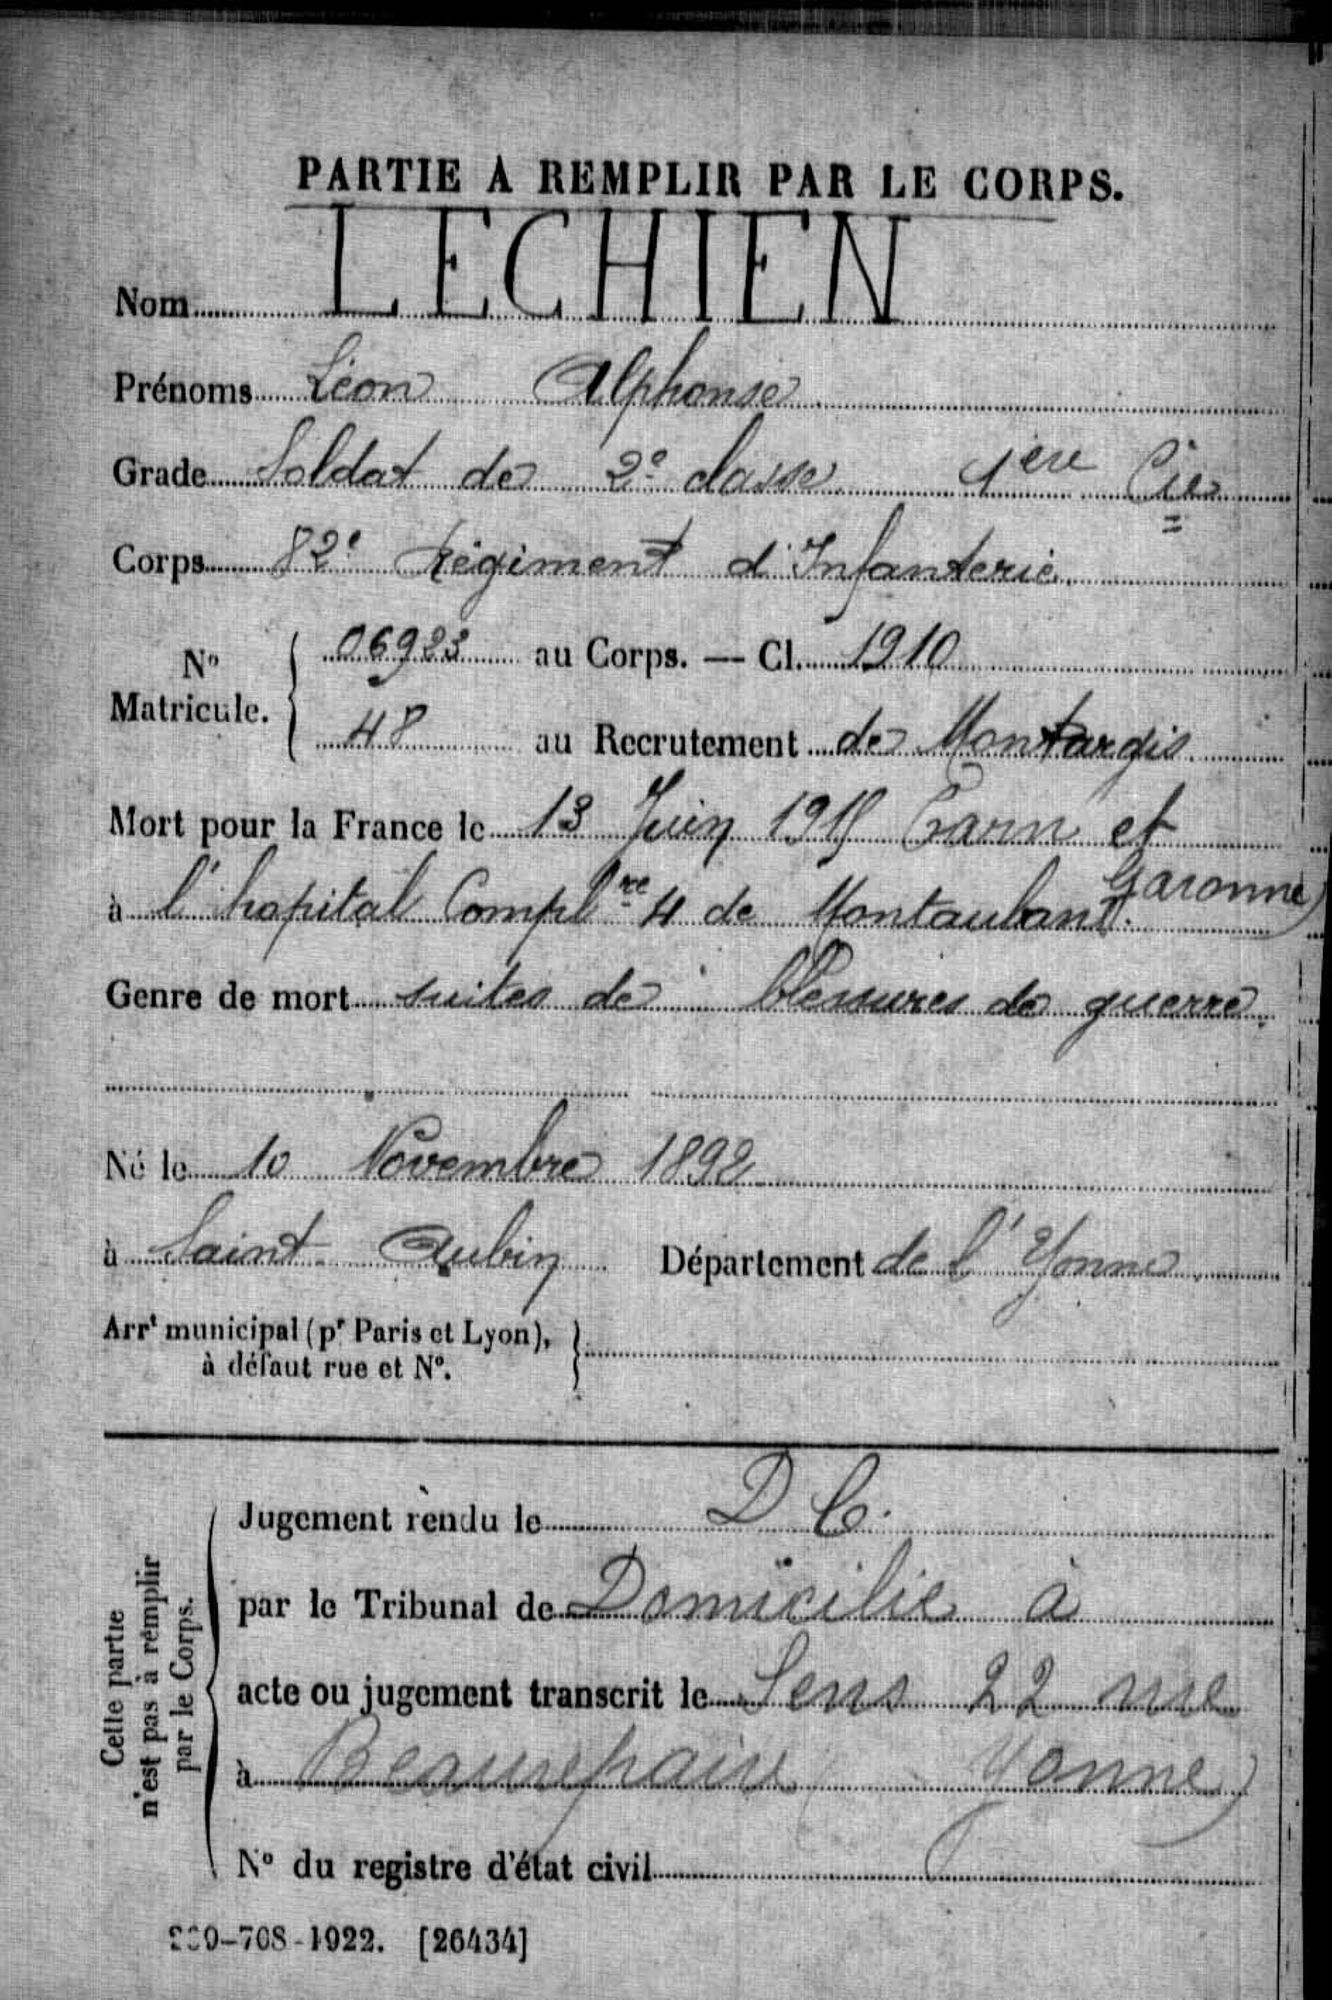 PARTIE A REMPLIR PAR LE CORPS.
Nom LECHIEN
Prénoms Léon Alphonse
Grade Soldat de 2e classe 1ere Cie
Corps 82e Régiment d'Infanterie
No Matricule. 06923 au Corps. — Cl. 1910
48 au Recrutement de Montargis
Mort pour la France le 13 Juin 1915 Tarn et
Garonne)
à l'hopital Complre 4 de Montauban
Genre de mort suites de blessures de guerre.
Né le 10 Novembre 1892
à Saint-Aubin Département de l'Yonne
Arrt municipal (pr Paris et Lyon),
à défaut rue et No.
Celle partie
n'est pas à remplir
par le Corps.
Jugement rendu le D C.
par le Tribunal de Domicilié à
acte ou jugement transcrit le Sens 22 rue
à Beaurepaire (Yonne)
No du registre d'état civil
-708-1922. [26434]